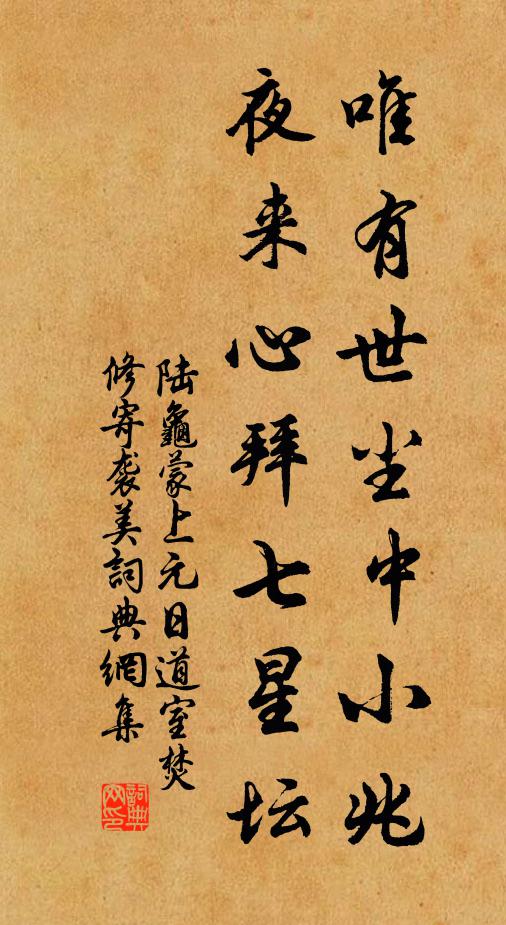 唯有世尘中小兆
夜来心拜七星坛
陆龜蒙上元日道室焚
修寄袭美詞典網集
詞典網印